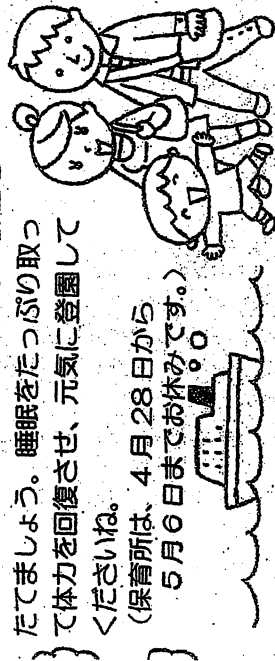 たてましょう。睡眠をたっぷり取っ
て体力を回復させ、元気に登園して
くださいね。
(保育所は、4月28日から
5月6日までお休みです。)